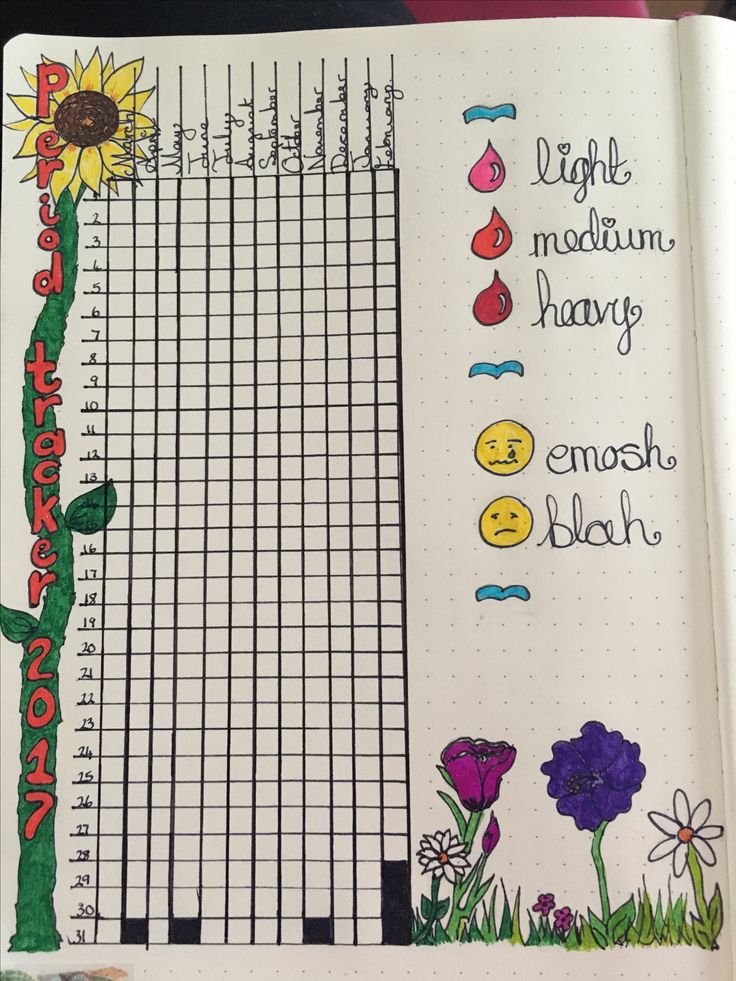 Period tracker 2017
March
April
May
June
July
August
September
November
December
January
February
1
2
3
4
5
6
7
8
9
10
11
12
13
14
15
16
17
18
19
20
21
22
23
24
25
26
27
28
29
30
31
light
medium
heavy
emosh
blah